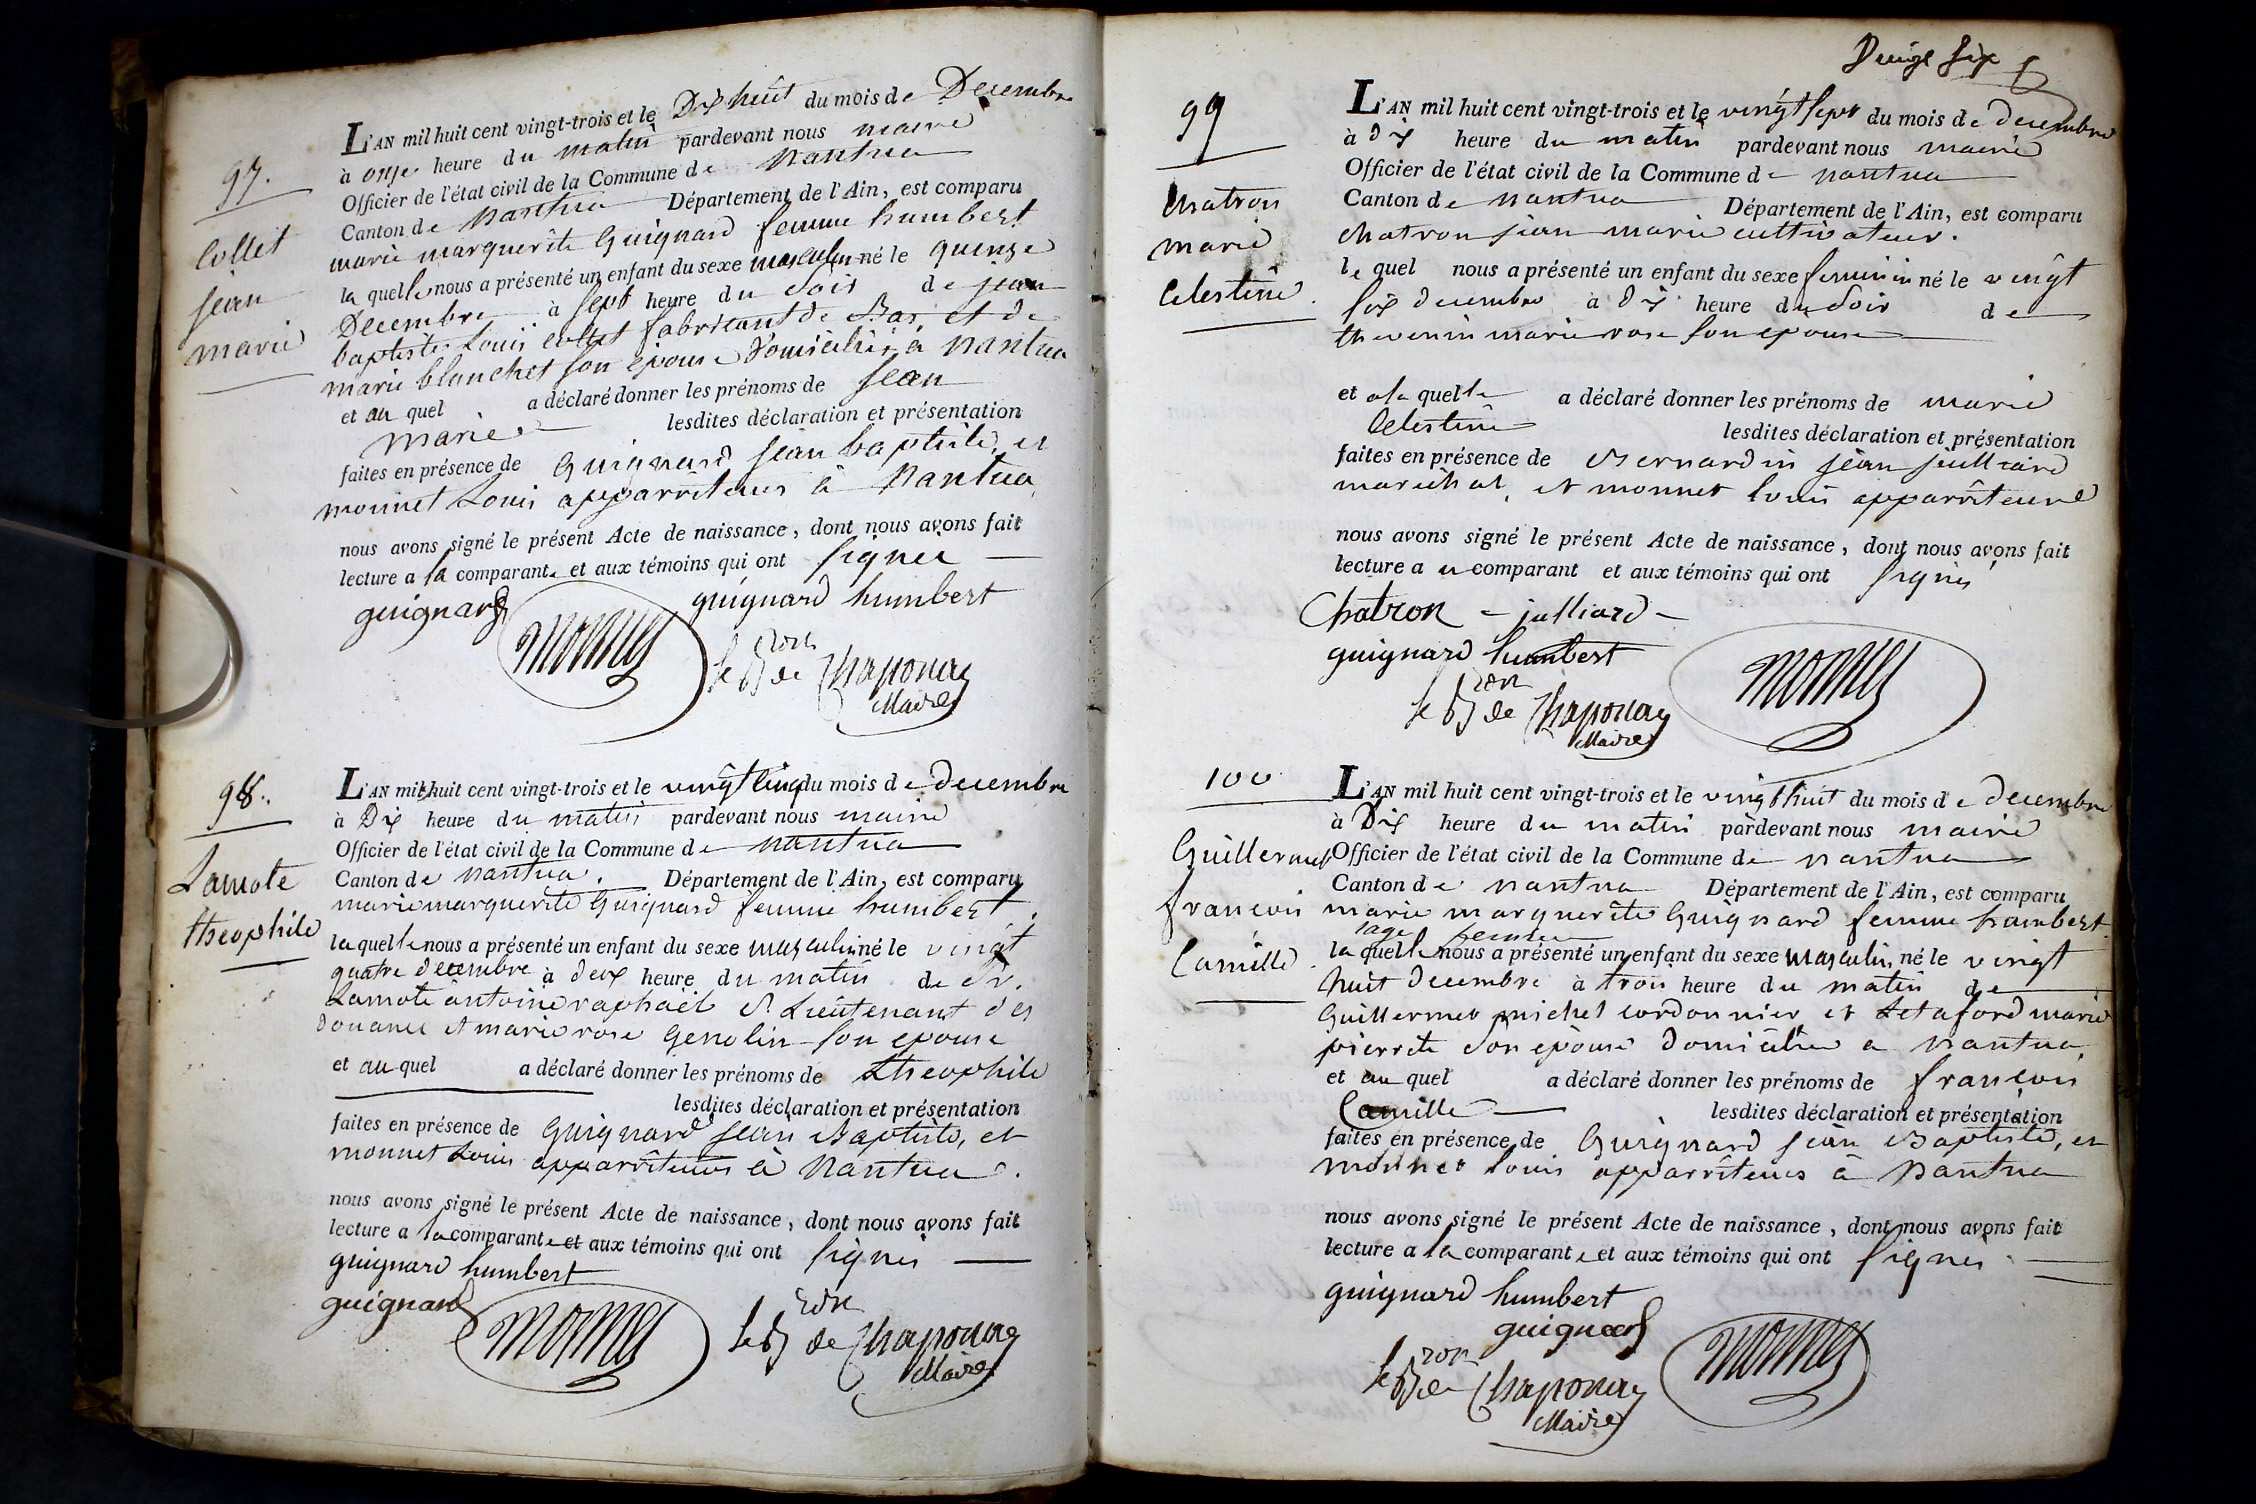 97.
Collet
jean
marie
L'AN mil huit cent vingt-trois et le Dix huit du mois de Decembre
à onze heure du matin pardevant nous maire
Officier de l'état civil de la Commune de Nantua
Canton de Nantua Département de l'Ain, est comparu
marie marguerite Guignard femme humbert
la quelle nous a présenté un enfant du sexe masculin né le quinze
Decembre à sept heure du soir de jean
baptiste Louis collet fabricant de Bas et de
marie blanchet son épouse domiciliés à Nantua
et au quel a déclaré donner les prénoms de jean
marie lesdites déclaration et présentation
faites en présence de Guignard jean baptiste, et
monnet Louis apparriteurs à Nantua
nous avons signé le présent Acte de naissance, dont nous avons fait
lecture a la comparante et aux témoins qui ont signés
guignard guignard humbert
monnet le Bron de Chaponay
Maire
98.
Lamote
theophile
L'AN mil huit cent vingt-trois et le vingt cinq du mois de decembre
à Dix heure du matin pardevant nous maire
Officier de l'état civil de la Commune de nantua
Canton de nantua. Département de l'Ain, est comparu
marie marguerite Guignard femme humbert.
la quelle nous a présenté un enfant du sexe masculin né le vingt
quatre decembre à deux heure du matin de Sr.
Lamote antoine raphael Lieutenant des
douanes et marie rose Genolin son epouse
et au quel a déclaré donner les prénoms de theophile
lesdites déclaration et présentation
faites en présence de Guignard jean Baptiste, et
monnet Louis apparriteurs à Nantua.
nous avons signé le présent Acte de naissance, dont nous avons fait
lecture a la comparante et aux témoins qui ont signés
guignard humbert
guignard monnet le Bron de Chaponay
Maire
Vingt six
99
Chatron
marie
Celestine.
L'AN mil huit cent vingt-trois et le vingt sept du mois de decembre
à dix heure du matin pardevant nous maire
Officier de l'état civil de la Commune de nantua
Canton de nantua Département de l'Ain, est comparu
chatron jean marie cultivateur.
le quel nous a présenté un enfant du sexe feminin né le vingt
six decembre à dix heure du soir de
thevenin marie rose son epouse
et a la quelle a déclaré donner les prénoms de marie
Celestine lesdites déclaration et présentation
faites en présence de Bernardin jean juilliard
maréchal, et monnet louis apparriteurs
nous avons signé le présent Acte de naissance, dont nous avons fait
lecture a u comparant et aux témoins qui ont signés
Chatron - julliard -
guignard humbert
le Bron de Chaponay monnet
Maire
100
Guillermet
françois
Camille.
L'AN mil huit cent vingt-trois et le vingt huit du mois de decembre
à Dix heure du matin pardevant nous maire
Officier de l'état civil de la Commune de nantua
Canton de nantua Département de l'Ain, est comparu
marie marguerite Guignard femme humbert.
sage femme
la quelle nous a présenté un enfant du sexe masculin né le vingt
huit decembre à trois heure du matin de
Guillermet michel cordonnier et marie
pierrete son epouse domicilié a nantua,
et au quel a déclaré donner les prénoms de françois
Camille lesdites déclaration et présentation
faites en présence de Guignard jean Baptiste, et
monnet louis apparriteurs à Nantua
nous avons signé le présent Acte de naissance, dont nous avons fait
lecture a la comparante et aux témoins qui ont signés
guignard humbert
guignard
le Bron de Chaponay monnet
Maire